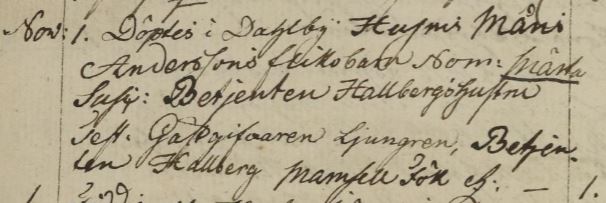 Nov: 1. Döptes i Dahlby Husm: Måns
Anderssons flickobarn Nom: Märta
Susc: Betjenten Hallbergs hustru
Test. Gästgifvaren Ljungren, Betjen-
ten Hallberg Mamsell Fök etc: — 1.